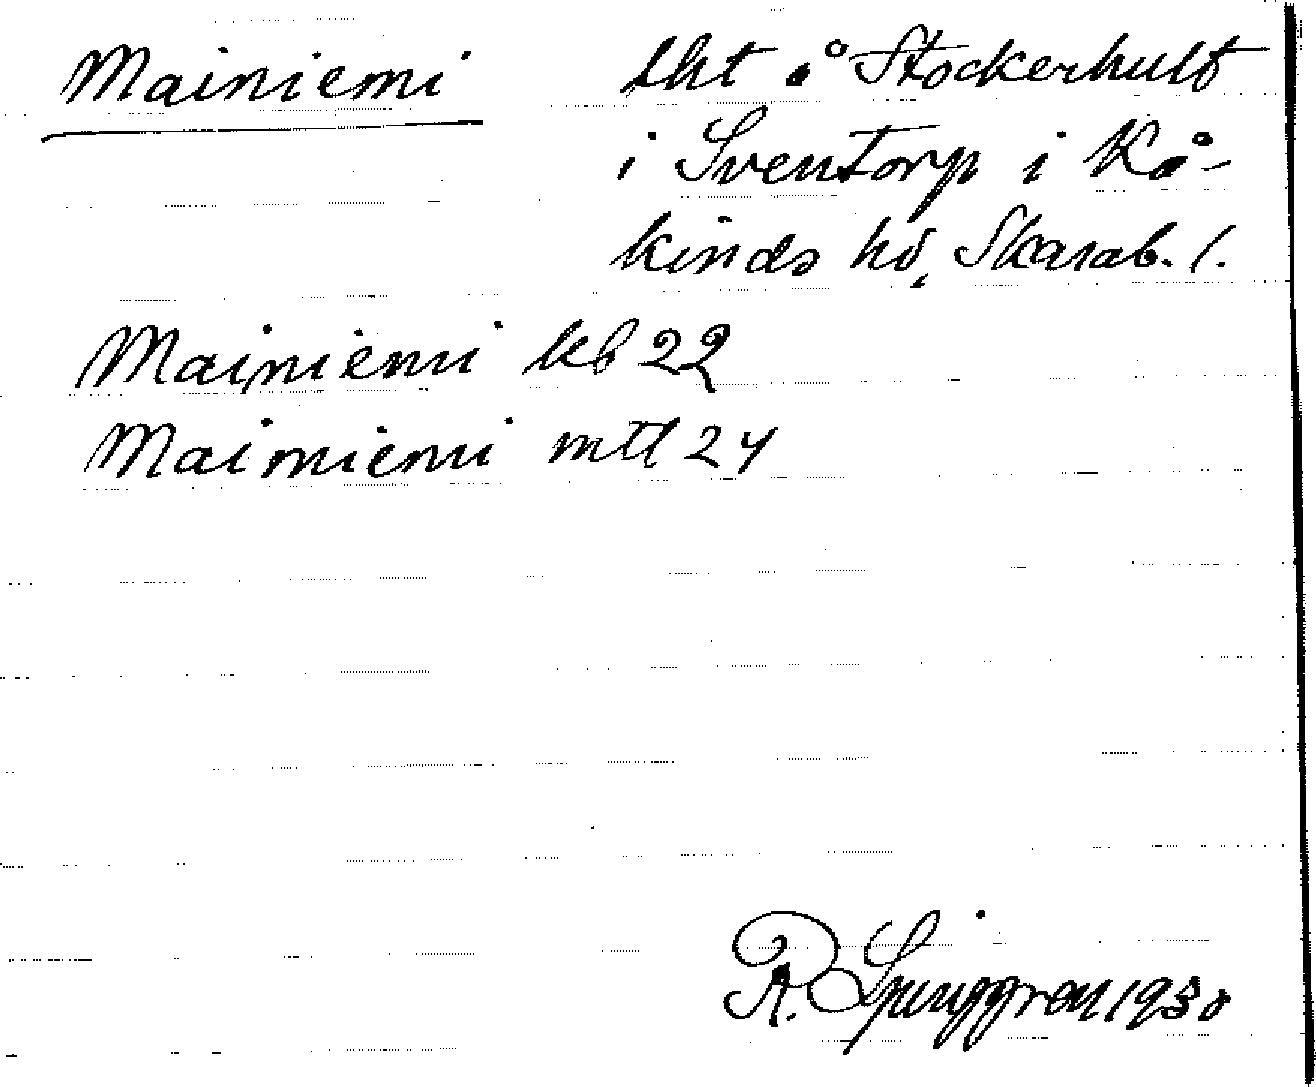 Mainiemi lht å Stockerhult
i Sventorp i Kå-
kinds hd, Skarab. l.
Mainiemi kb 22
Maimiemi mtl 24
R. Ljunggren 1930